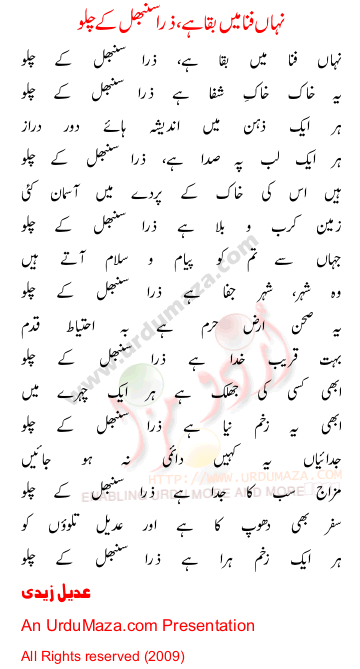 نہاں فنا میں بقا ہے، ذرا سنبھل کے چلو
نہاں فنا میں بقا ہے، ذرا سنبھل کے چلو
یہ خاک خاکِ شفا ہے ذرا سنبھل کے چلو
ہر ایک ذہن میں اندیشہ ہائے دور دراز
ہر ایک لب پہ صدا ہے، ذرا سنبھل کے چلو
ہیں اس کی خاک کے پردے میں آسمان کئی
زمین کرب و بلا ہے ذرا سنبھل کے چلو
جہاں سے تم کو پیام و سلام آتے ہیں
وہ شہر، شہر جفا ہے ذرا سنبھل کے چلو
یہ صحن ارض حرم ہے بہ احتیاط قدم
بہت قریب خدا ہے ذرا سنبھل کے چلو
ابھی کسی کی جھلک ہے ہر ایک چہرے میں
ابھی یہ زخم نیا ہے ذرا سنبھل کے چلو
جدائیاں یہ کہیں دائمی نہ ہو جائیں
مزاج سب کا جدا ہے ذرا سنبھل کے چلو
سفر بھی دھوپ کا ہے اور عدیل تلوؤں کو
ہر ایک زخم ہرا ہے ذرا سنبھل کے چلو
عدیل زیدی
An UrduMaza.com Presentation
All Rights reserved (2009)
www.urdumaza.com
اُردو مزہ
HTTP://WWW.URDUMAZA.COM
ENABLING URDU MORE AND MORE